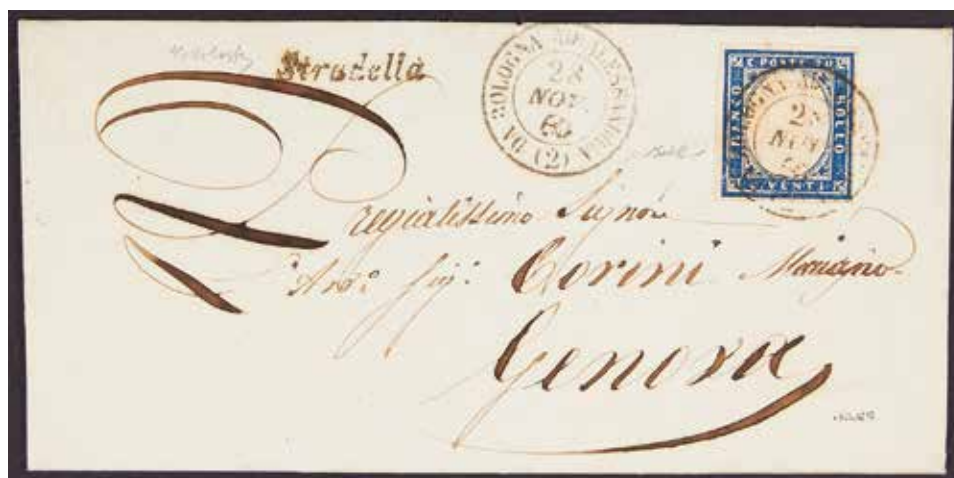 Stradella
DA BOLOGNA AD ALESSANDRIA (2)
28
NOV.
60
C. POSTE 20
FRANCO
BOLLO
VENTI
28
NOV
Pregiatissimo Signore
Avv.º Sig.
Genova